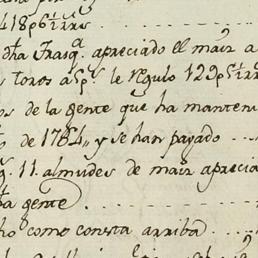 418p6½rrs
dha Frasqa. apreciado el maiz a
toros á 5p. le regulo 129p6½rrs
os de la gente que ha manteni
de 1784,, y se han payado
11. almudes de maiz aprecia
gente
ho como consta arriba